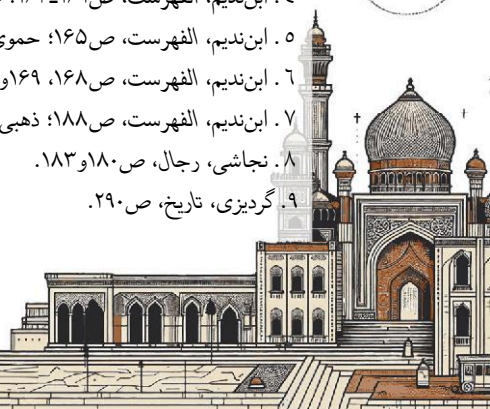 ابن‌ندیم، الفهرست،
۵. ابن‌ندیم، الفهرست، ص۱۶۵؛ حموی
۶. ابن‌ندیم، الفهرست، ص۱۶۸، ۱۶۹و
۷. ابن‌ندیم، الفهرست، ص۱۸۸؛ ذهبی
۸. نجاشی، رجال، ص۱۸۰و۱۸۳.
۹. گردیزی، تاریخ، ص۲۹۰.